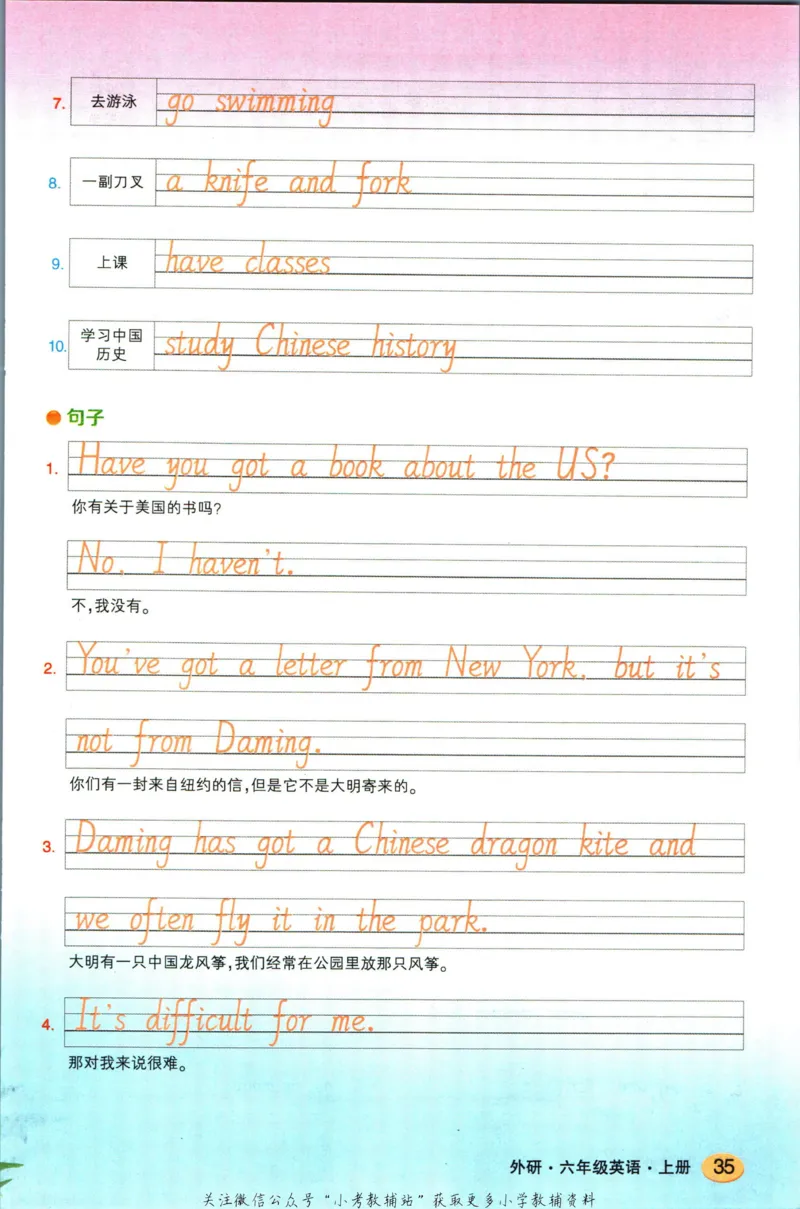 7. 去游泳 go swimming
8. 一副刀叉 a knife and fork
9. 上课 have classes
10. 学习中国
历史 study Chinese history
句子
1. Have you got a book about the US?
你有关于美国的书吗?
No, I haven't.
不,我没有。
2. You've got a letter from New York, but it's
not from Daming.
你们有一封来自纽约的信,但是它不是大明寄来的。
3. Daming has got a Chinese dragon kite and
we often fly it in the park.
大明有一只中国龙风筝,我们经常在公园里放那只风筝。
4. It's difficult for me.
那对我来说很难。
外研·六年级英语·上册 35
关注微信公众号“小考教辅站”获取更多小学教辅资料